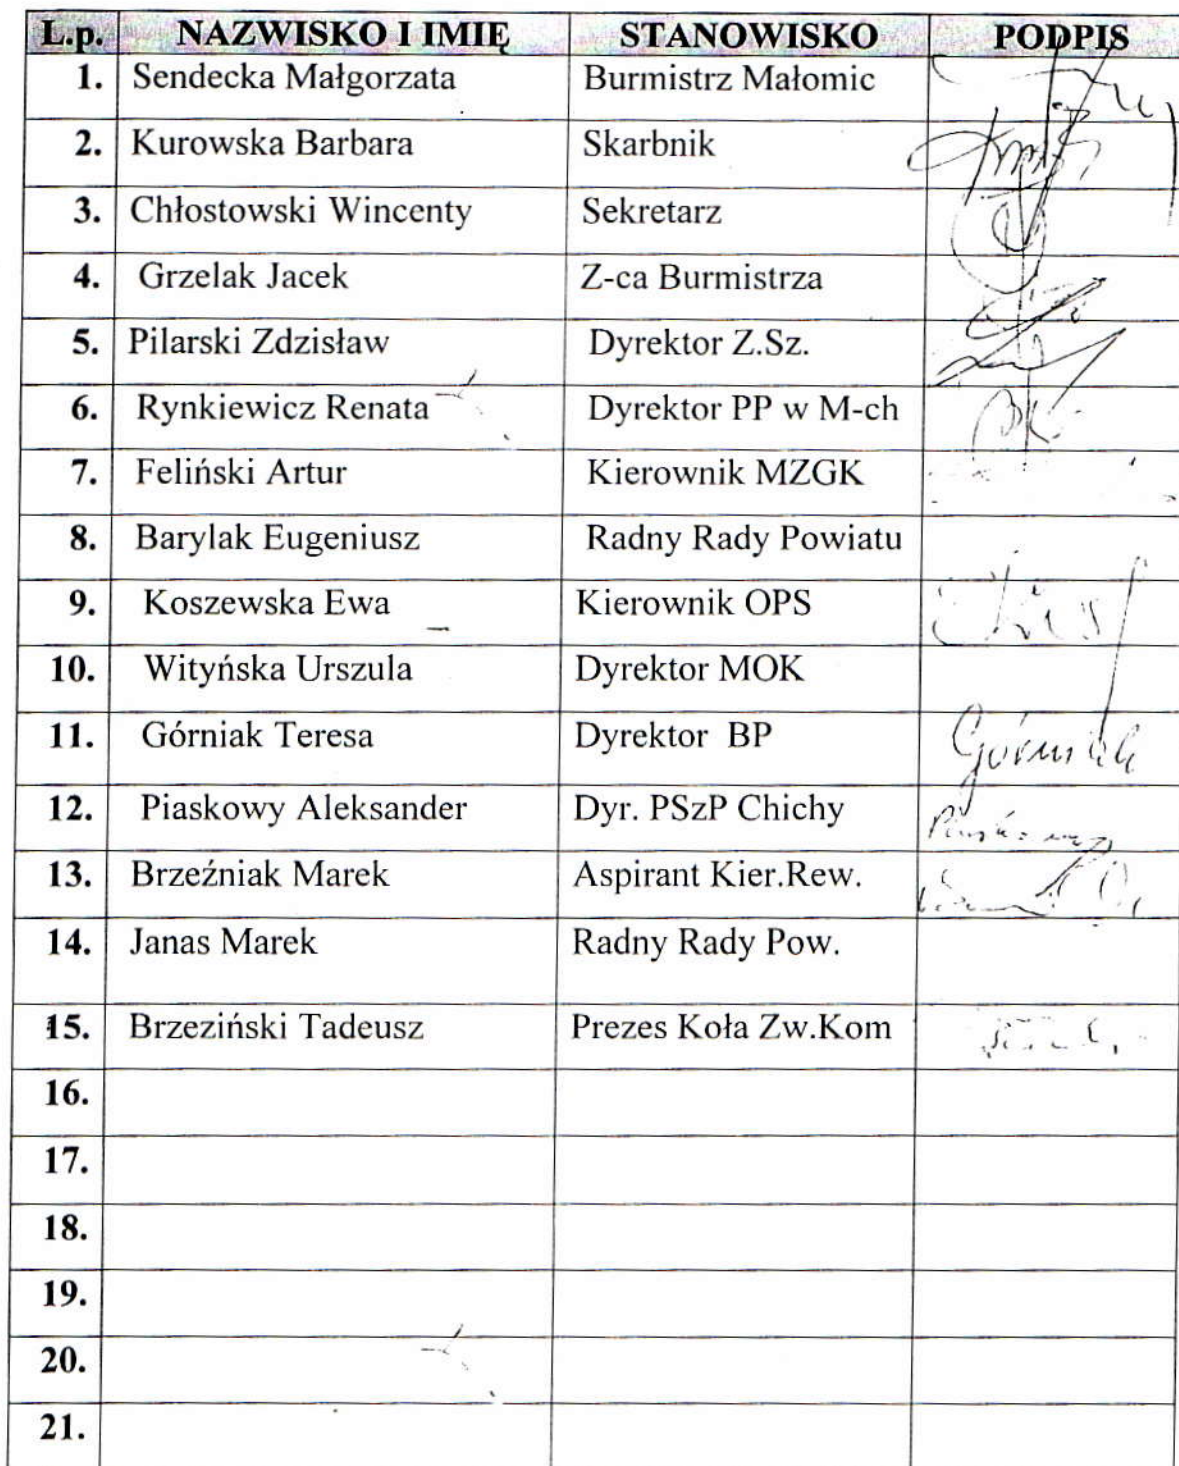 L.p. NAZWISKO I IMIĘ STANOWISKO PODPIS
1. Sendecka Małgorzata Burmistrz Małomic
2. Kurowska Barbara Skarbnik
3. Chłostowski Wincenty Sekretarz
4. Grzelak Jacek Z-ca Burmistrza
5. Pilarski Zdzisław Dyrektor Z.Sz.
6. Rynkiewicz Renata Dyrektor PP w M-ch
7. Feliński Artur Kierownik MZGK
8. Barylak Eugeniusz Radny Rady Powiatu
9. Koszewska Ewa Kierownik OPS
10. Wityńska Urszula Dyrektor MOK
11. Górniak Teresa Dyrektor BP Górniak
12. Piaskowy Aleksander Dyr. PSzP Chichy
13. Brzeźniak Marek Aspirant Kier.Rew.
14. Janas Marek Radny Rady Pow.
15. Brzeziński Tadeusz Prezes Koła Zw.Kom
16.
17.
18.
19.
20.
21.